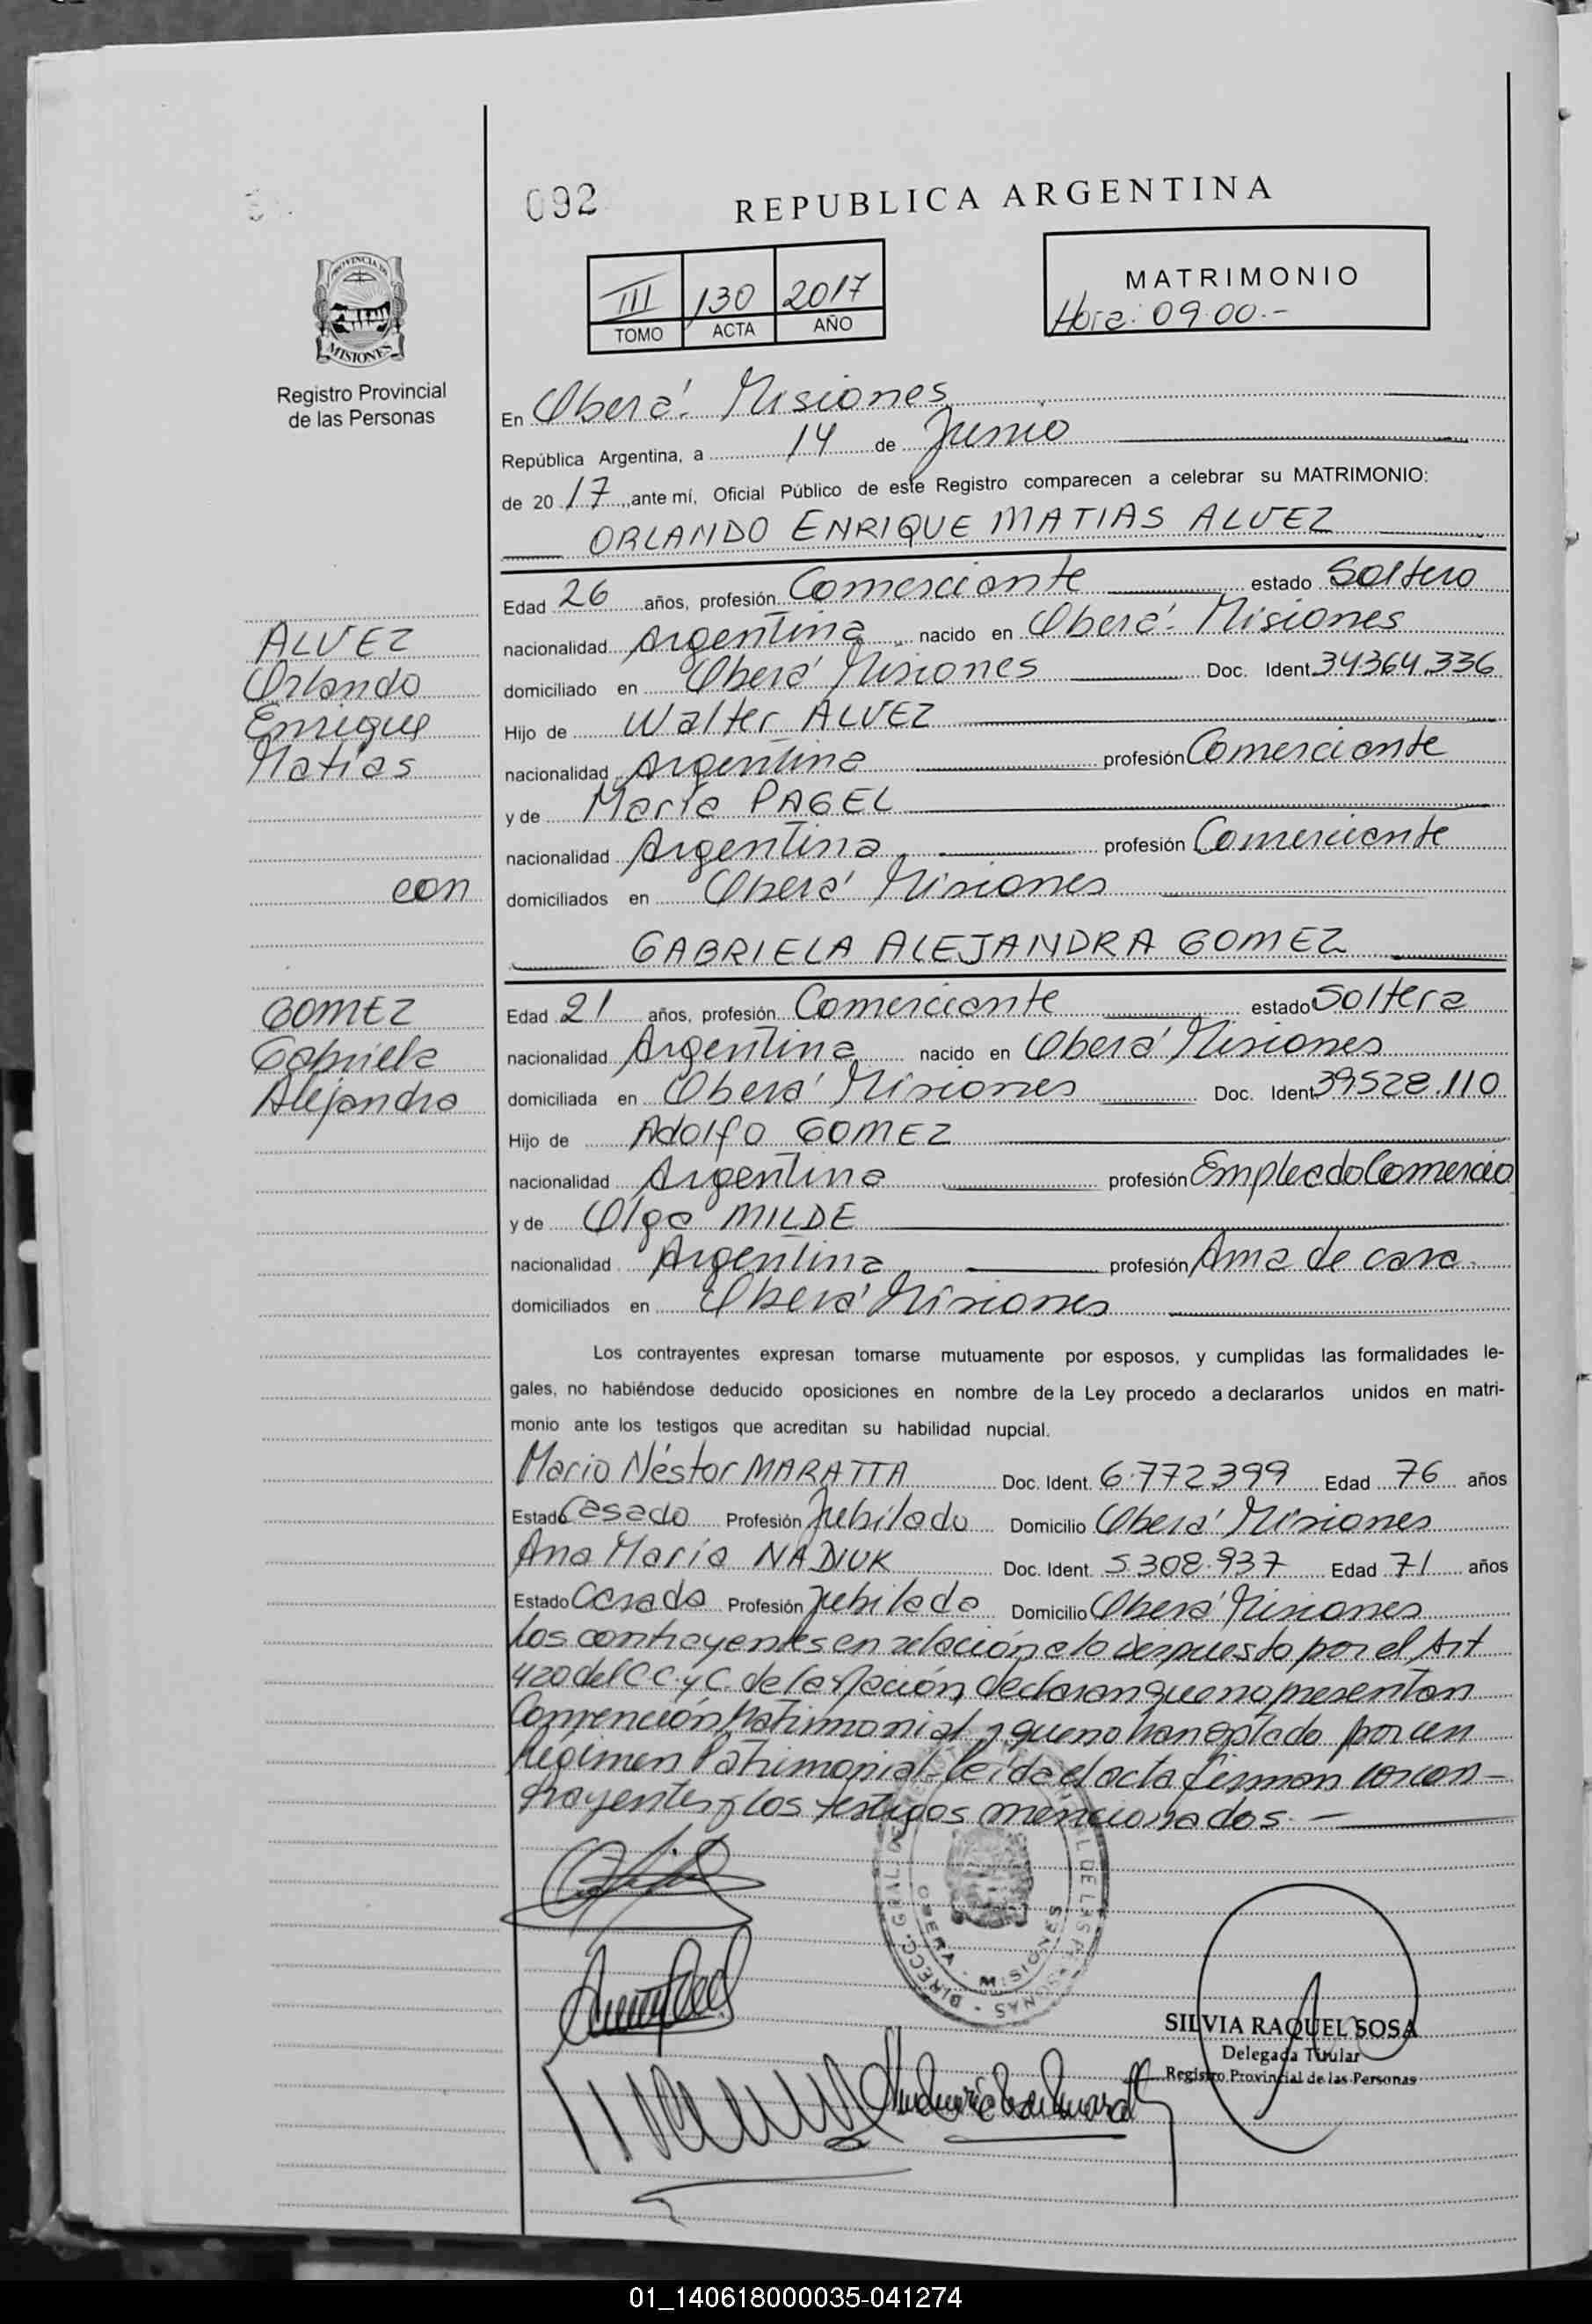 092
REPUBLICA ARGENTINA
PROVINCIA DE
MISIONES
Registro Provincial
de las Personas
III 130 2017
TOMO ACTA AÑO
MATRIMONIO
Hora: 09.00.-
En Oberá. Misiones
República Argentina, a 14 de Junio
de 2017, ante mí, Oficial Público de este Registro comparecen a celebrar su MATRIMONIO:
ORLANDO ENRIQUE MATIAS ALVEZ
Edad 26 años, profesión Comerciante estado Soltero
nacionalidad Argentina nacido en Oberá. Misiones
domiciliado en Oberá Misiones Doc. Ident. 34.364.336
Hijo de Walter ALVEZ
nacionalidad Argentina profesión Comerciante
y de María PAGEL
nacionalidad Argentina profesión Comerciante
domiciliados en Oberá Misiones
ALVEZ
Orlando
Enrique
Matías
con
GABRIELA ALEJANDRA GOMEZ
Edad 21 años, profesión Comerciante estado Soltera
nacionalidad Argentina nacido en Oberá Misiones
domiciliada en Oberá Misiones Doc. Ident. 39.528.110
Hijo de Adolfo GOMEZ
nacionalidad Argentina profesión Empleado Comercio
y de Olga MILDE
nacionalidad Argentina profesión Ama de casa.
domiciliados en Oberá Misiones
GOMEZ
Gabriela
Alejandra
Los contrayentes expresan tomarse mutuamente por esposos, y cumplidas las formalidades le-
gales, no habiéndose deducido oposiciones en nombre de la Ley procedo a declararlos unidos en matri-
monio ante los testigos que acreditan su habilidad nupcial.
Mario Néstor MARATTA Doc. Ident. 6.772.399 Edad 76 años
Estado Casado Profesión Jubilado Domicilio Oberá Misiones
Ana María NADIUK Doc. Ident. 5.308.937 Edad 71 años
Estado Casada Profesión Jubilada Domicilio Oberá Misiones
Los contrayentes en relación a lo despuesto por el Art
420 del C.C. y C. de la Nación, declaran que no presentan
Convención Patrimonial, y que no han optado por un
Régimen Patrimonial. Leída el acta firman los con-
trayentes y los testigos mencionados. -
OBERA - MISIONES
SILVIA RAQUEL SOSA
Delegada Titular
Registro Provincial de las Personas
01_140618000035-041274